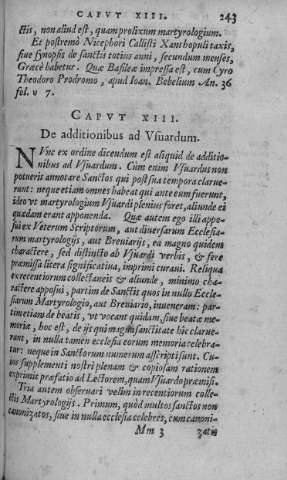 CAPVT XIII. 243
ctis, non aliud est, quam prolixum martyrologium.
Et postremò Nicephori Callisti Xanthopuli taxis,
siue synopsis de sanctis totius anni, secundum menses,
Græcè habetur. Quæ Basileæ impressa est, cum Cyro
Theodoro Prodromo, apud Ioan. Bebelium An. 36
fol. υ 7.
CAPVT XIII.
De additionibus ad Vsuardum.
NVnc ex ordine dicendum est aliquid de additio-
nibus ad Vsuardum. Cum enim Vsuardus non
potuerit annotare Sanctos qui post sua tempora clarue-
runt: neque etiam omnes habeat qui ante eum fuerunt,
ideo vt martyrologium Vsuardi plenius foret, aliunde ei
quædam erant apponenda. Quæ autem ego illi appo-
sui ex Veterum Scriptorum, aut diuersarum Ecclesia-
rum martyrologijs, aut Breuiarijs, ea magno quidem
charactere, sed distincto ab Vsuardi verbis, & ferè
præmissa litera significatiua, imprimi curaui. Reliqua
ex recentiorum collectaneis & aliunde, minimo cha-
ractere apposui, partim de Sanctis quos in nullo Eccle-
siarum Martyrologio, aut Breuiario, inueneram: par-
tim etiam de beatis, vt vocant quidam, siue beatæ me-
moria, hoc est, de ijs qui magna sanctitate hîc clarue-
runt, in nulla tamen ecclesia eorum memoria celebra-
tur: neque in Sanctorum numerum asscripti sunt. Cu-
ius supplementi nostri plenam & copiosam rationem
exprimit præfatio ad Lectorem, quam Vsuardo præmisi.
Tria autem obseruari velim in recentiorum colle-
ctis Martyrologijs. Primum, quòd multos sanctos non
canonizatos, siue in nulla ecclesia celebres, cum canoni-
Mm 3 zatis